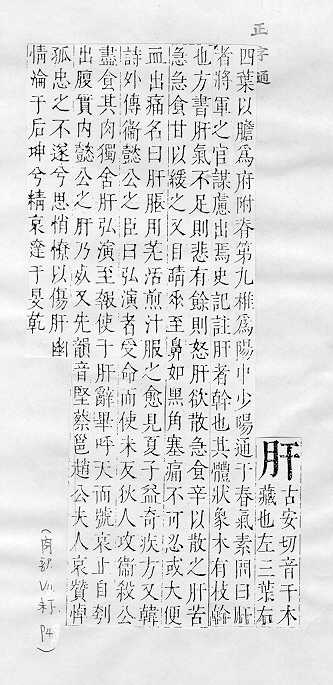 正字通
肝
古安切音干木
藏也左三葉右
四葉以膽爲府附脊第九椎爲陽中少陽通于春氣素問曰肝
者將軍之官謀慮出焉史記註肝者幹也其體狀象木有枝幹
也方書肝氣不足則悲有餘則怒肝欲散急食辛以散之肝苦
急急食甘以緩之又目睛垂至鼻如黑角塞痛不可忍或大便
血出痛名曰肝脹用羌活煎汁服之愈見夏子益奇疾方又韓
詩外傳衞懿公之臣曰弘演者受命而使未反狄人攻衞殺公
盡食其肉獨舍肝弘演至報使于肝辭畢呼天而號哀止自刳
出腹實內懿公之肝乃死又先韻音堅蔡邕趙公夫人哀贊悼
孤忠之不遂兮思悄憭以傷肝幽
情淪于后坤兮精哀達于旻乾